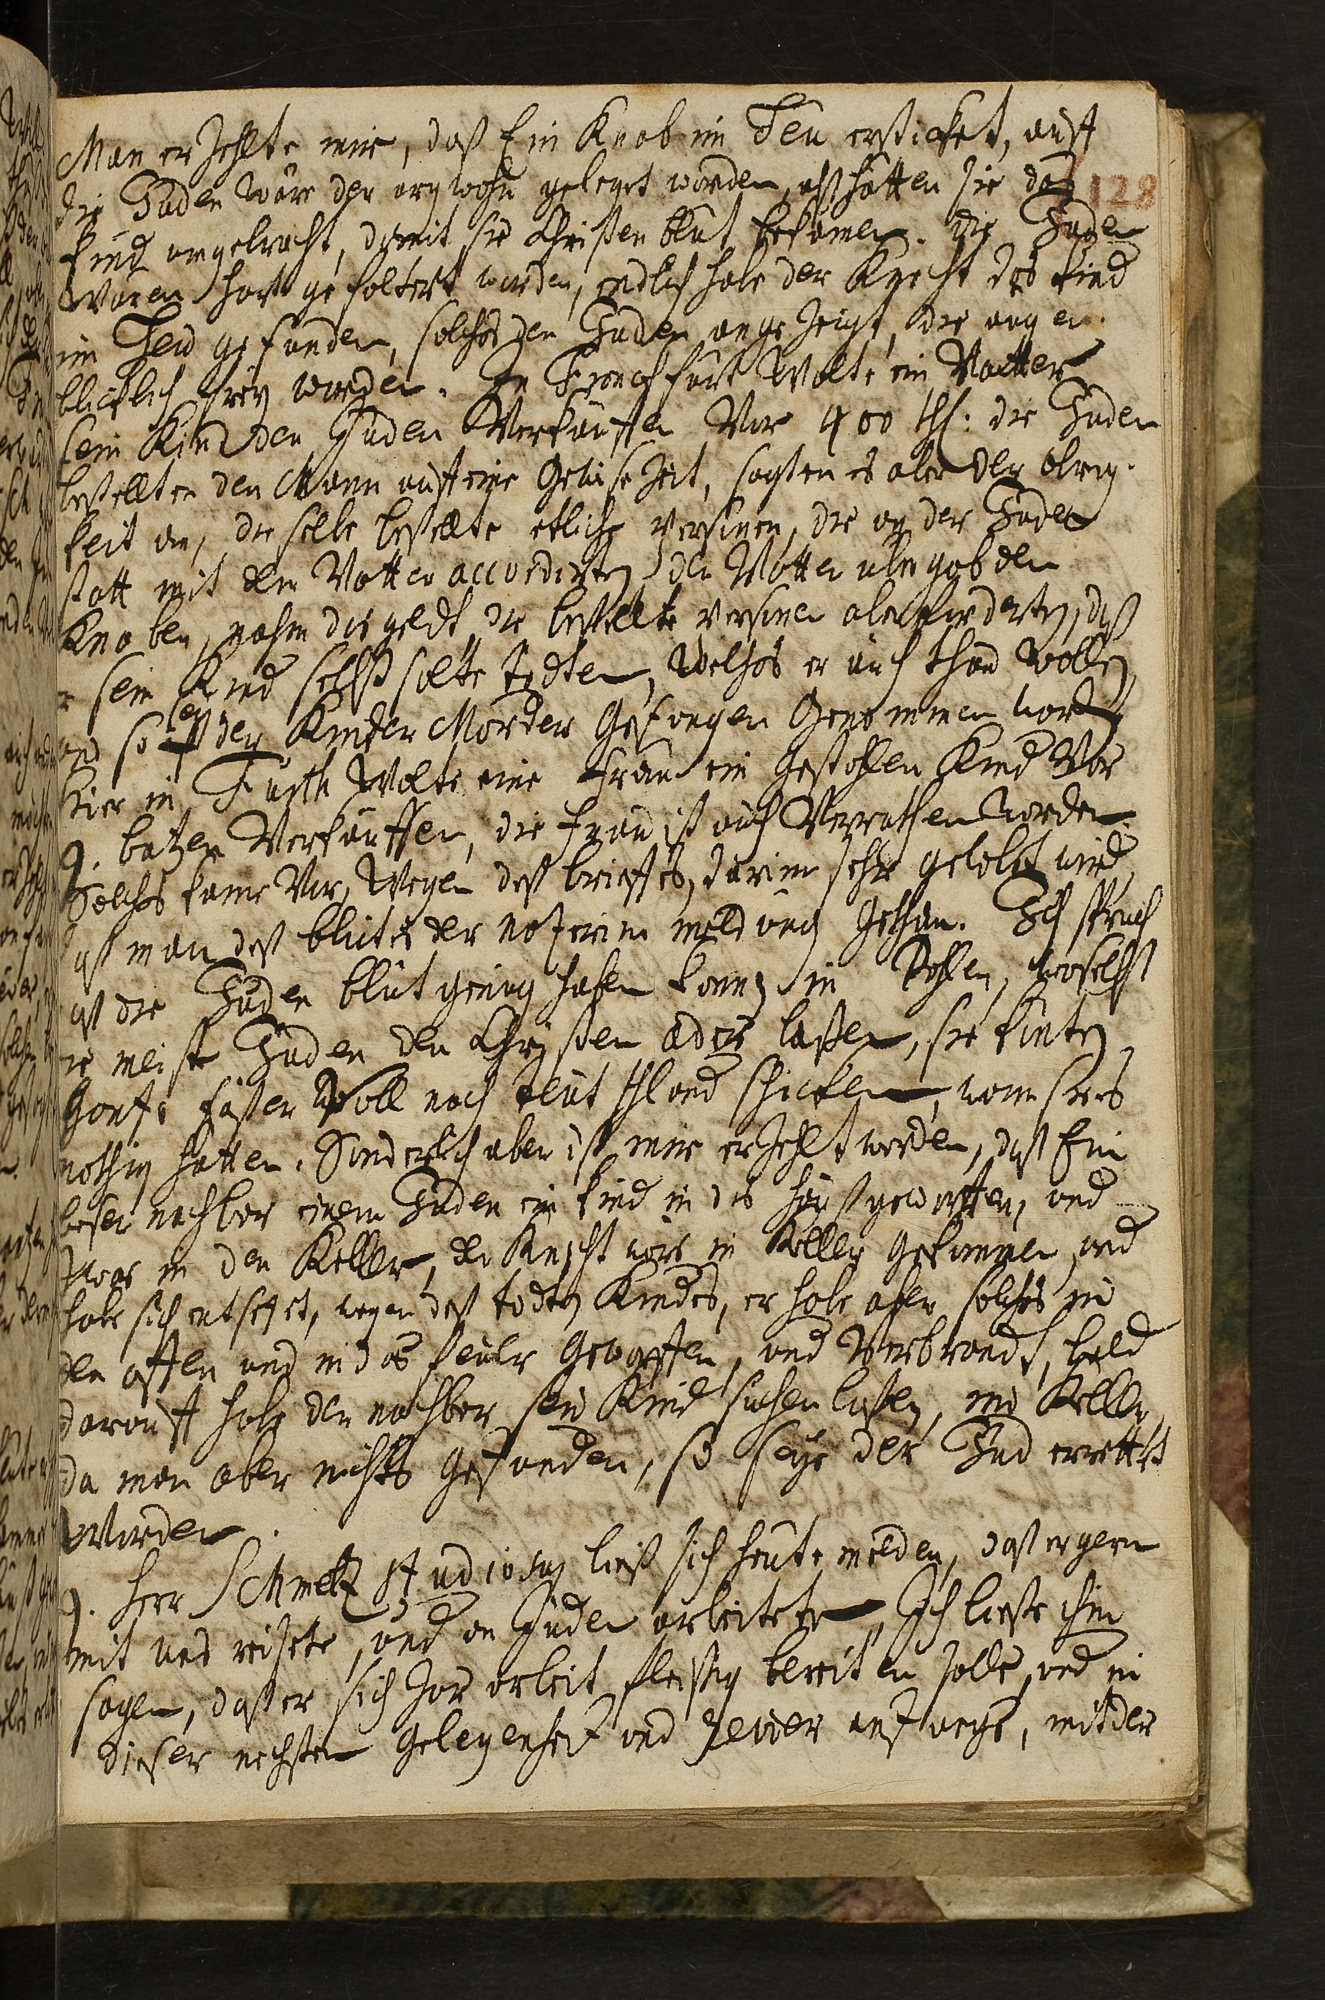 Man erzehlte mir, daß Ein Knab im Heu ersticket, auff
die Juden wäre der argwohn geleget worden, alß hätten sie daß
128
kind umgebracht, damit sie Christen blut bekämen. die Juden
Waren hart gefoltert worden, endlich habe der Knecht das kind
im Heu gefunden, solches den Juden angezeigt, die augen
blicklich frey worden. In Franckfurt Wolte ein Vatter
sein Kind den Juden Verkauffen Vor 400 thl: die Juden
bestellten den Mann auff eine Gewise Zeit, sagten es aber der obrig-
keit an, die selbe bestellte etliche persinen, die an der Juden
statt mit dem Vatter accordirten, der Vatter übergab den
Knaben, nahm das geldt, die bestellte persinen aber forderten, daß
er sein Kind selbst solte tödten, Welches er auch thun wollen,
und so ist der Kinder Mörder Gefangen Genommen worden
hier in Fürth Wolte eine Frau ein Gestohlen Kind Vor
9. batzen Verkauffen, die frau ist auch Verrathen worden.
Solches kame Vor, Wegen deß brieffes, darinn sehr gelobt wird,
daß man deß blutes der nozerim meldung gethan. Ich sprach
daß die Juden blut genug haben könen in Pohlen, woselbst
die meiste Juden den Christen ader laßen, sie könten
Gantze faßer Voll nach teutschland schicken, wann sie es
nöthig hätten. Sonderlich aber ist mir erzehlt worden, daß Ein
böser nachbar einem Juden ein kind in das hauß geworffen, und
zwar in den Keller, der Knecht wäre in Keller Gekommen, und
habe sich entsetzet, wegen deß todten Kindes, er habe aber solches in
den offen und in das feuer Geworffen, und Verbrandt, bald
darauff habe der nachbar sein Kind suchen laßen, im Keller,
da man aber nichts Gefunden, so seye der Jud errettet
Worden.
9. Herr Schmetz Studiosus ließ sich heute melden, daß er gern
mit uns reisete, und an Juden arbeitete, Ich ließe ihm
sagen, daß er sich zur arbeit fleißig bereiten solle, und in
dieser nechsten Gelegenheit und unß mit der